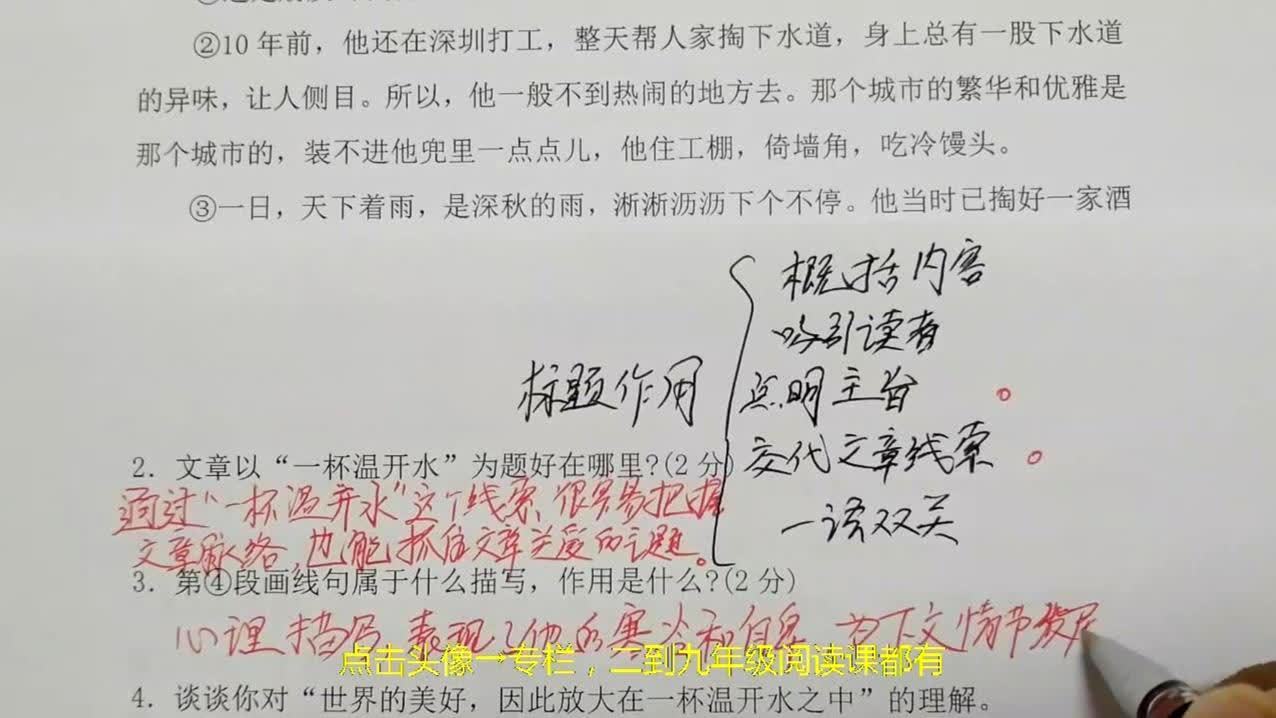 ②10 年前，他还在深圳打工，整天帮人家掏下水道，身上总有一股下水道
的异味，让人侧目。所以，他一般不到热闹的地方去。那个城市的繁华和优雅是
那个城市的，装不进他兜里一点点儿，他住工棚，倚墙角，吃冷馒头。
③一日，天下着雨，是深秋的雨，淅淅沥沥下个不停。他当时已掏好一家酒
标题作用
概括内容
吸引读者
点明主旨。
交代文章线索。
一语双关
2．文章以“一杯温开水”为题好在哪里?(2 分)
通过“一杯温开水”这个线索，很容易把握
文章脉络，也能抓住文章关爱的主题。
3．第④段画线句属于什么描写，作用是什么?(2 分)
心理描写 表现了他的寒冷和自卑 为下文情节发展
点击头像→专栏，二到九年级阅读课都有
4．谈谈你对“世界的美好，因此放大在一杯温开水之中”的理解。